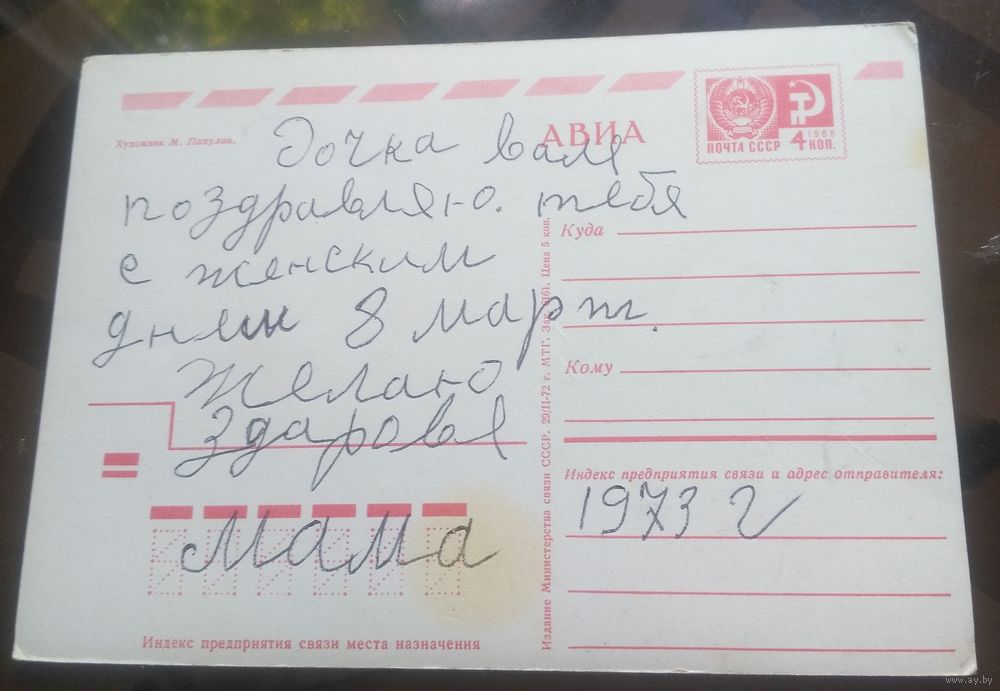 Художник М. Папулин.
АВИА
ПОЧТА СССР
4 1966
КОП.
Дочка валя
поздравляю. тебя
с женским
днем 8 март.
Желаю
Здаровья
мама
Индекс предприятия связи места назначения
Издание Министерства связи СССР. 29/II-72 г. МТГ. Зак. Цена 5 коп.
Куда
Кому
Индекс предприятия связи и адрес отправителя:
1973 г
www.ay.by